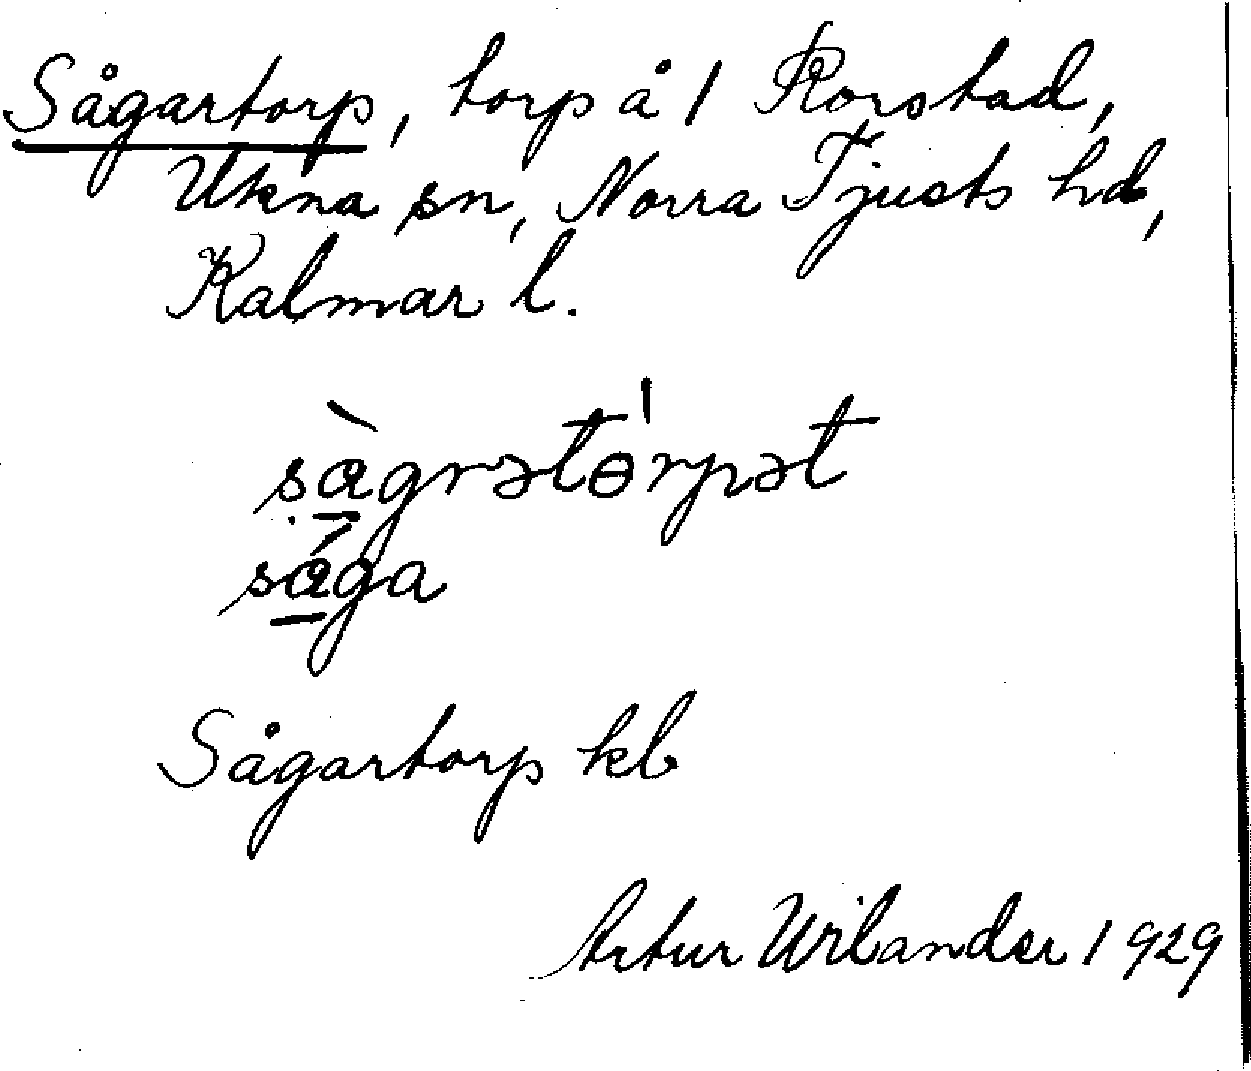 Sågartorp, torp å 1 Rorstad,
Ukna sn, Norra Tjusts hd,
Kalmar l.
sàgrətɵ́rpət
sága
Sågartorp kb
Artur Wilander 1929